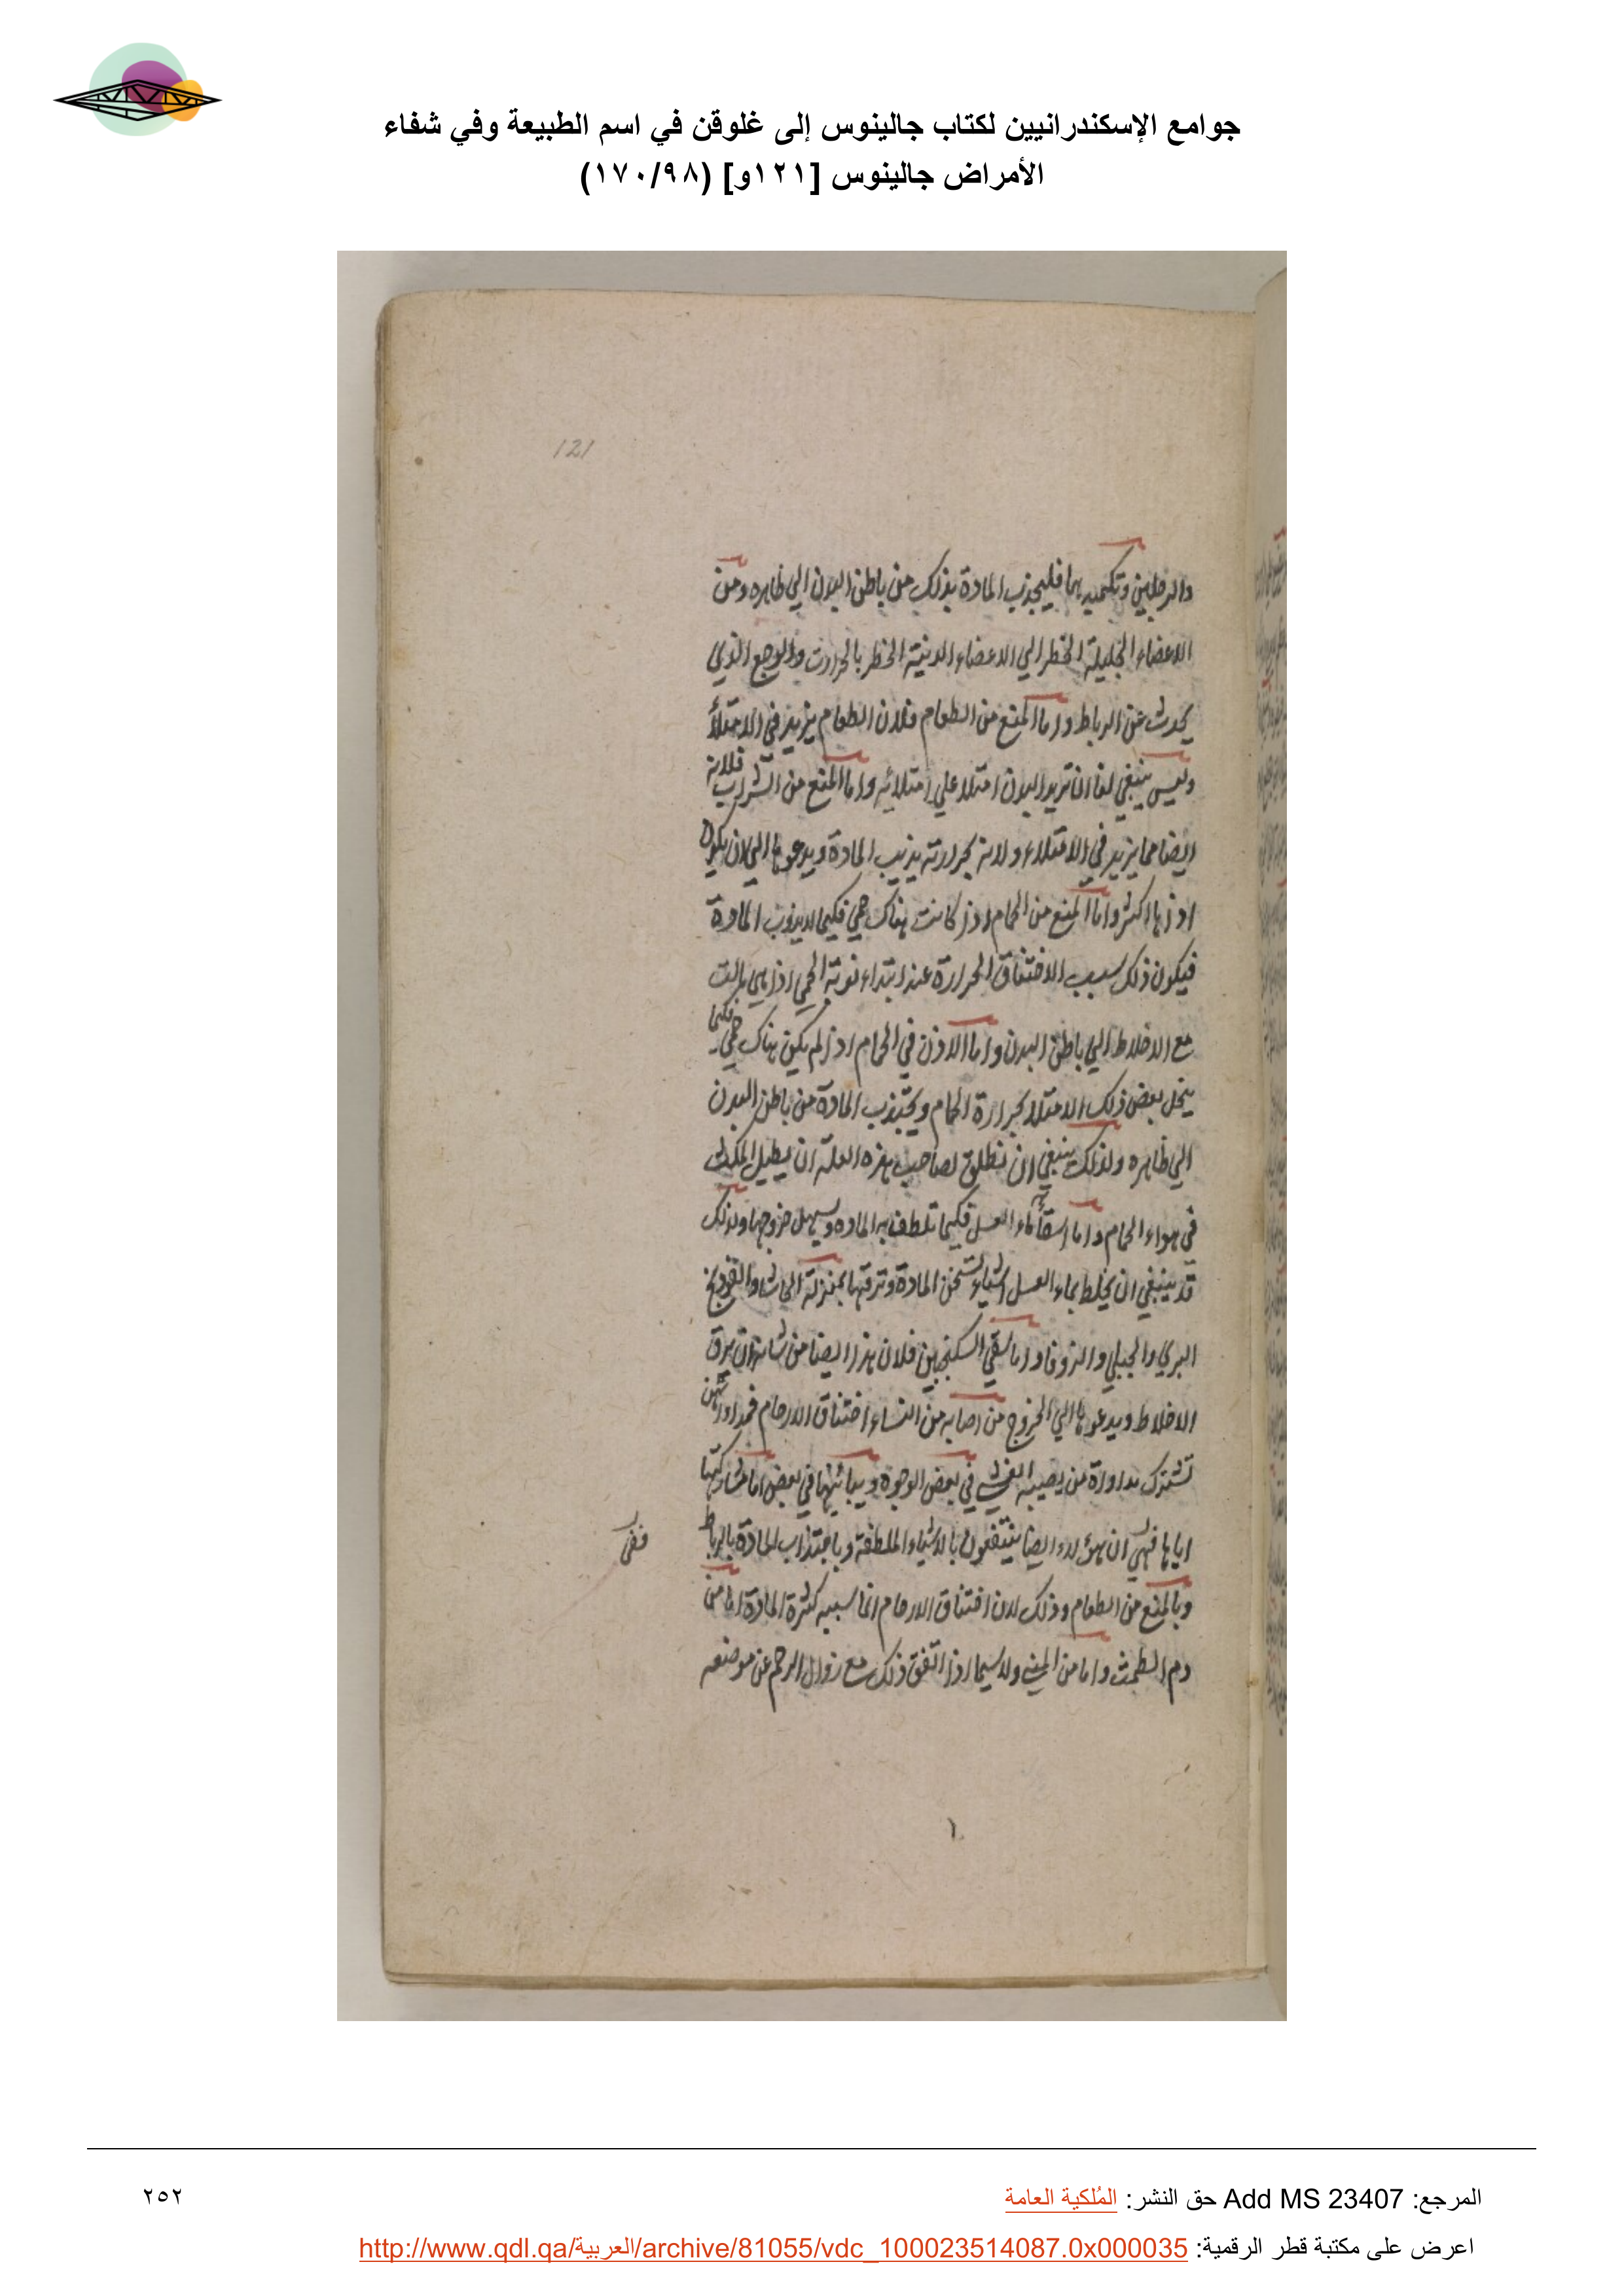 جوامع الإسكندرانيين لكتاب جالينوس إلى غلوقن في اسم الطبيعة وفي شفاء
الأمراض جالينوس [١٢١و] (١٧٠/٩٨)
121
والرجلين وتكميد بها فليجذب المادة بذلك من باطن البدن الي ظاهره ومن
الاعضاء الجليلة الخطر الي الاعضاء الدنية الخطر بالحرارت والوجع الذي
يحدث عن الرباط واما المنع من الطعام فلان الطعام يزيد في الامتلأ
وليس ينبغي لنا ان نزيد البدن امتلا علي امتلائه واما المنع من الشراب فلانه
ايضا مما يزيد في الامتلاء ولانه بحرارته يذيب المادة ويدعوها الي ان يكون
اذاها اكثر واما المنع من الحمام اذا كانت هناك حمي فكيما لا يذوب المادة
فيكون ذلك سبب الاختناق الحرارة عند ابتداء نوبة الحمي اذا هي مالت
مع الاخلاط الي باطن البدن واما الاذن في الحمام اذا لم يكن هناك حمي فكيما
ينحل بعض ذلك الامتلا بحرارة الحمام ويجتذب المادة من باطن البدن
الي ظاهره ولذلك ينبغي ان نطلق لصاحب هذه العلة ان يطيل المكث
في هواء الحمام واما اسقأئه ماء العسل فكيما تلطف به المادة ويسهل خروجها ولذلك
قد ينبغي ان يخلط بماء العسل اشياء تسخن المادة وترقها بمنزلة الحاشا والفودنج
البري والجبلي والزوفا واما سقي السكنجبين فلان هذا ايضا من شانه ان يرق
الاخلاط ويدعوها الي الخروج من اصابه من النساء اختناق الارحام فمداواتهن
تشترك مداواة من يصيبه الغشي في بعض الوجوه ويباينها في بعض اما مشاركتها
اياها فهي ان هؤلاء ايضا ينتفعون بالاشياء الملطفة وباجتذاب المادة بالرباط
وبالمنع من الطعام وذلك لان اختناق الارحام انما سببه كثرة المادة اما من
دم الطمث واما من المني ولا سيما اذا اتفق ذلك مع زوال الرحم عن موضعه
المرجع: Add MS 23407 حق النشر: المُلكية العامة
٢٥٢
اعرض على مكتبة قطر الرقمية: http://www.qdl.qa/العربية/archive/81055/vdc_100023514087.0x000035